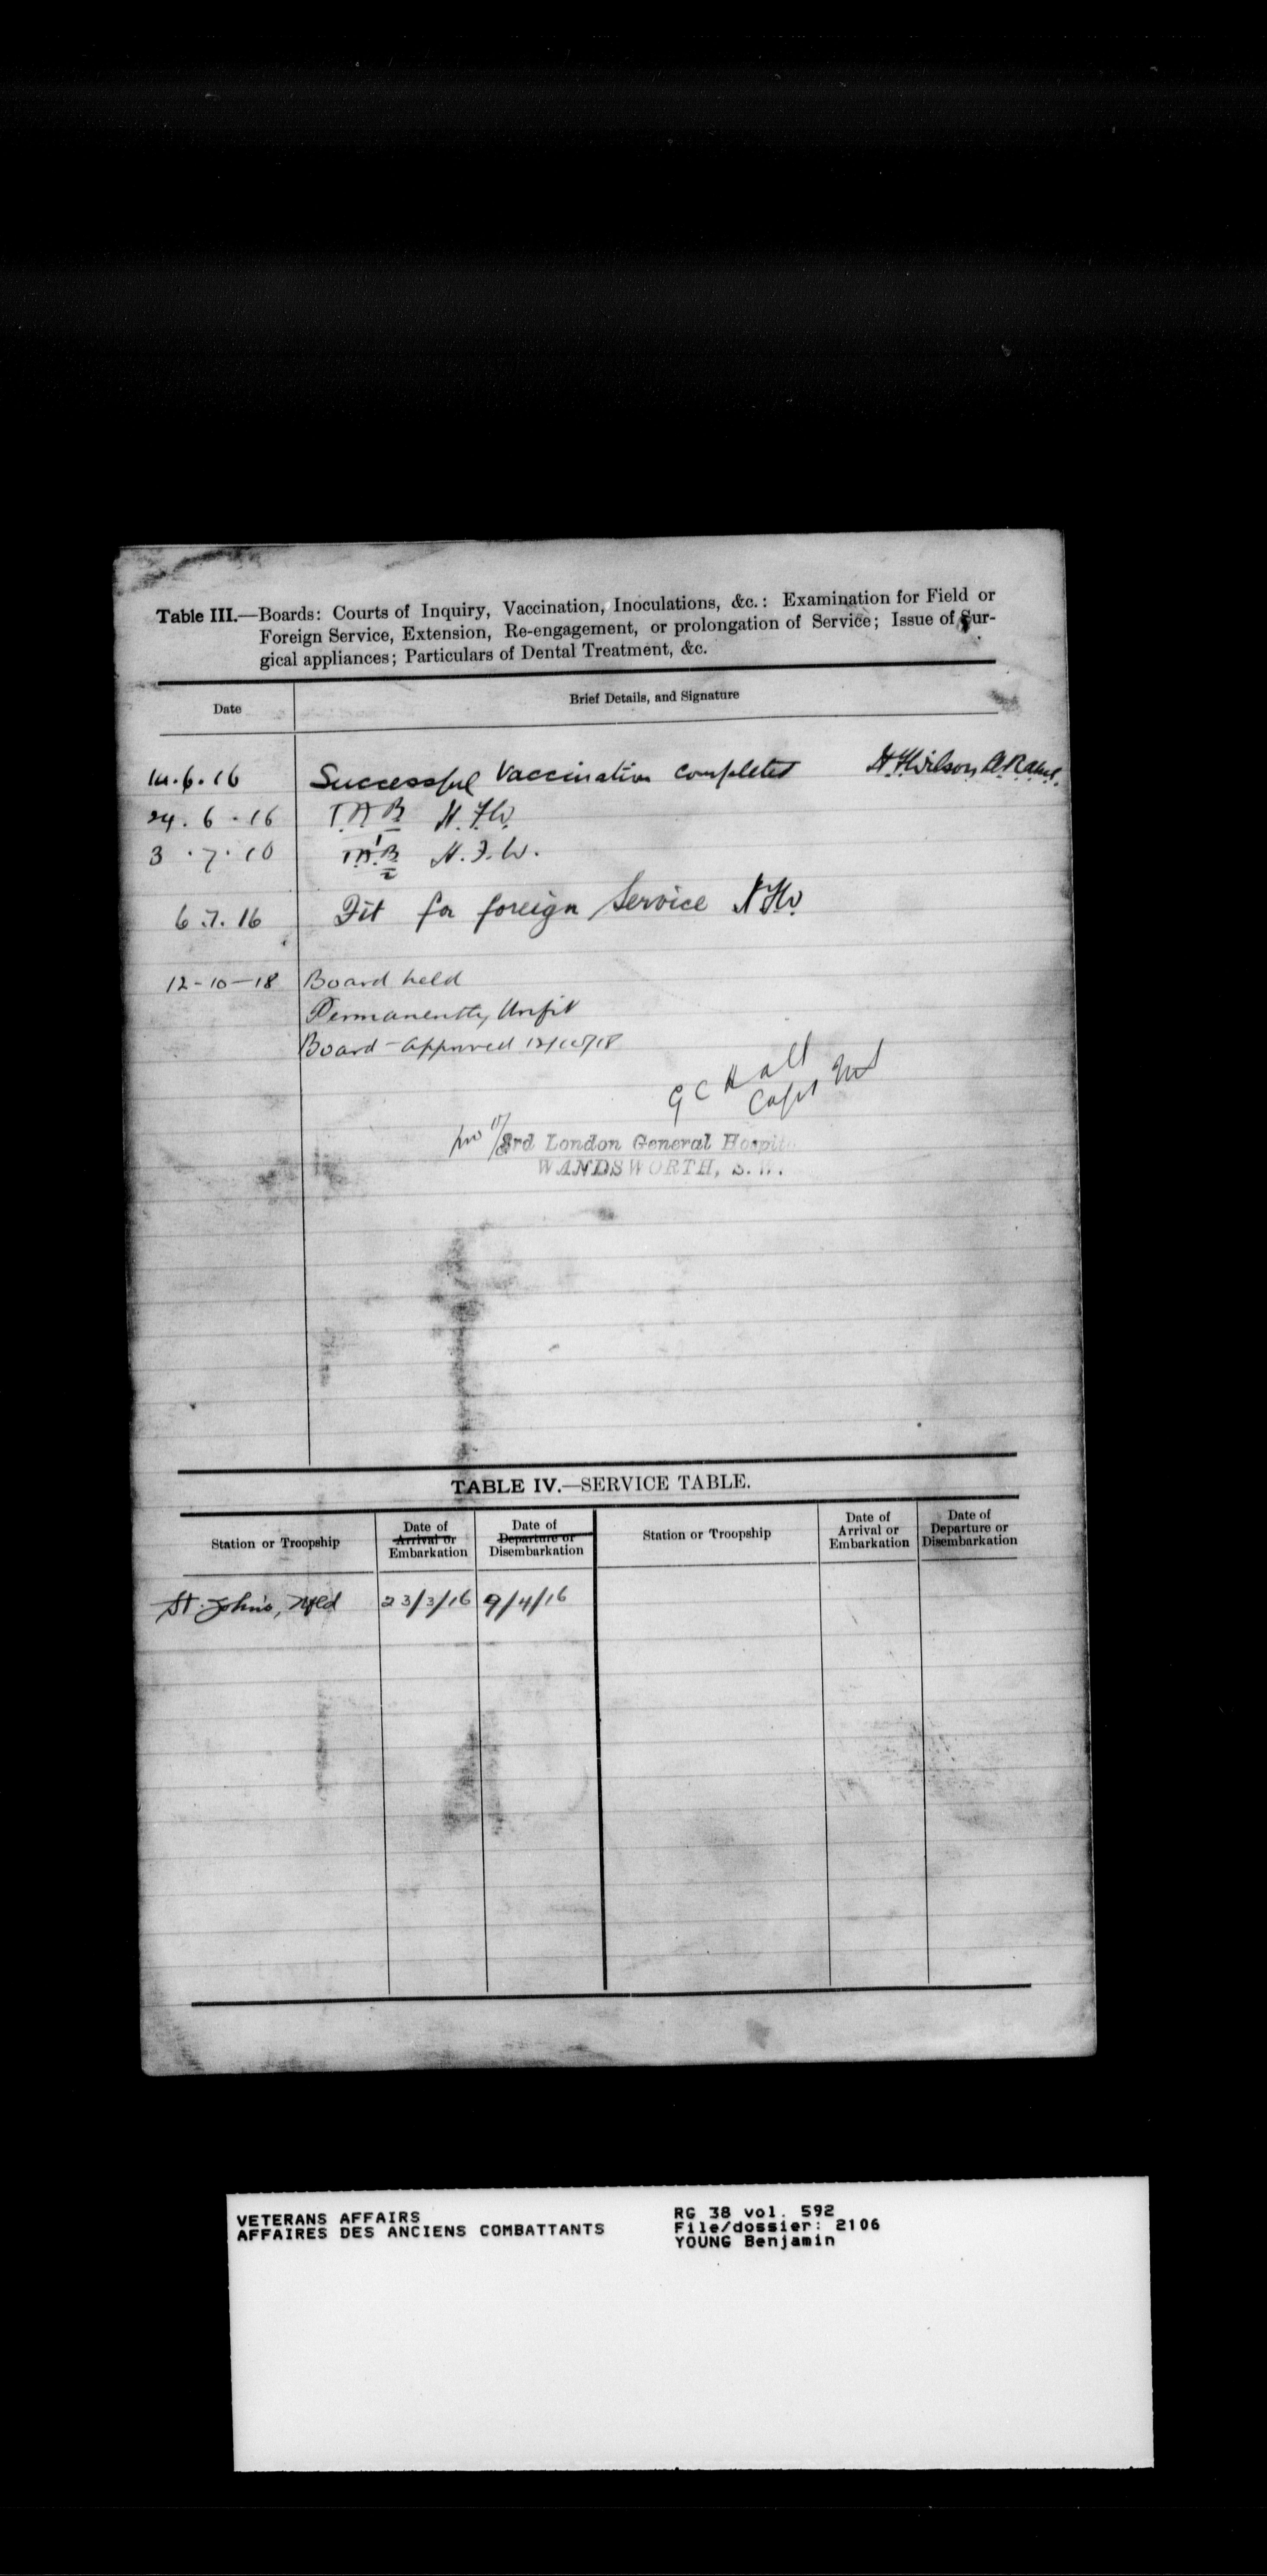 Table III.—Boards: Courts of Inquiry, Vaccination, Inoculations, &c.: Examination for Field or
Foreign Service, Extension, Re-engagement, or prolongation of Service; Issue of Sur-
gical appliances; Particulars of Dental Treatment, &c.
Date Brief Details, and Signature
14.6.16 Successful Vaccination completed H.F.Wilson
24.6.16 T.A.B H.F.W.
3.7.16 T.A.B H.F.W.
6.7.16 Fit for foreign Service H.F.W.
12-10-18 Board held
Permanently Unfit
Board approved 12/10/18
G C Hall
Capt
3rd London General Hospit
WANDSWORTH, S.W.
TABLE IV.—SERVICE TABLE.
Station or Troopship Date of Arrival or Embarkation Date of Departure or Disembarkation Station or Troopship Date of Arrival or Embarkation Date of Departure or Disembarkation
St. John's, Nfld 23/3/16 9/4/16
VETERANS AFFAIRS
AFFAIRES DES ANCIENS COMBATTANTS
RG 38 vol. 592
File/dossier: 2106
YOUNG Benjamin